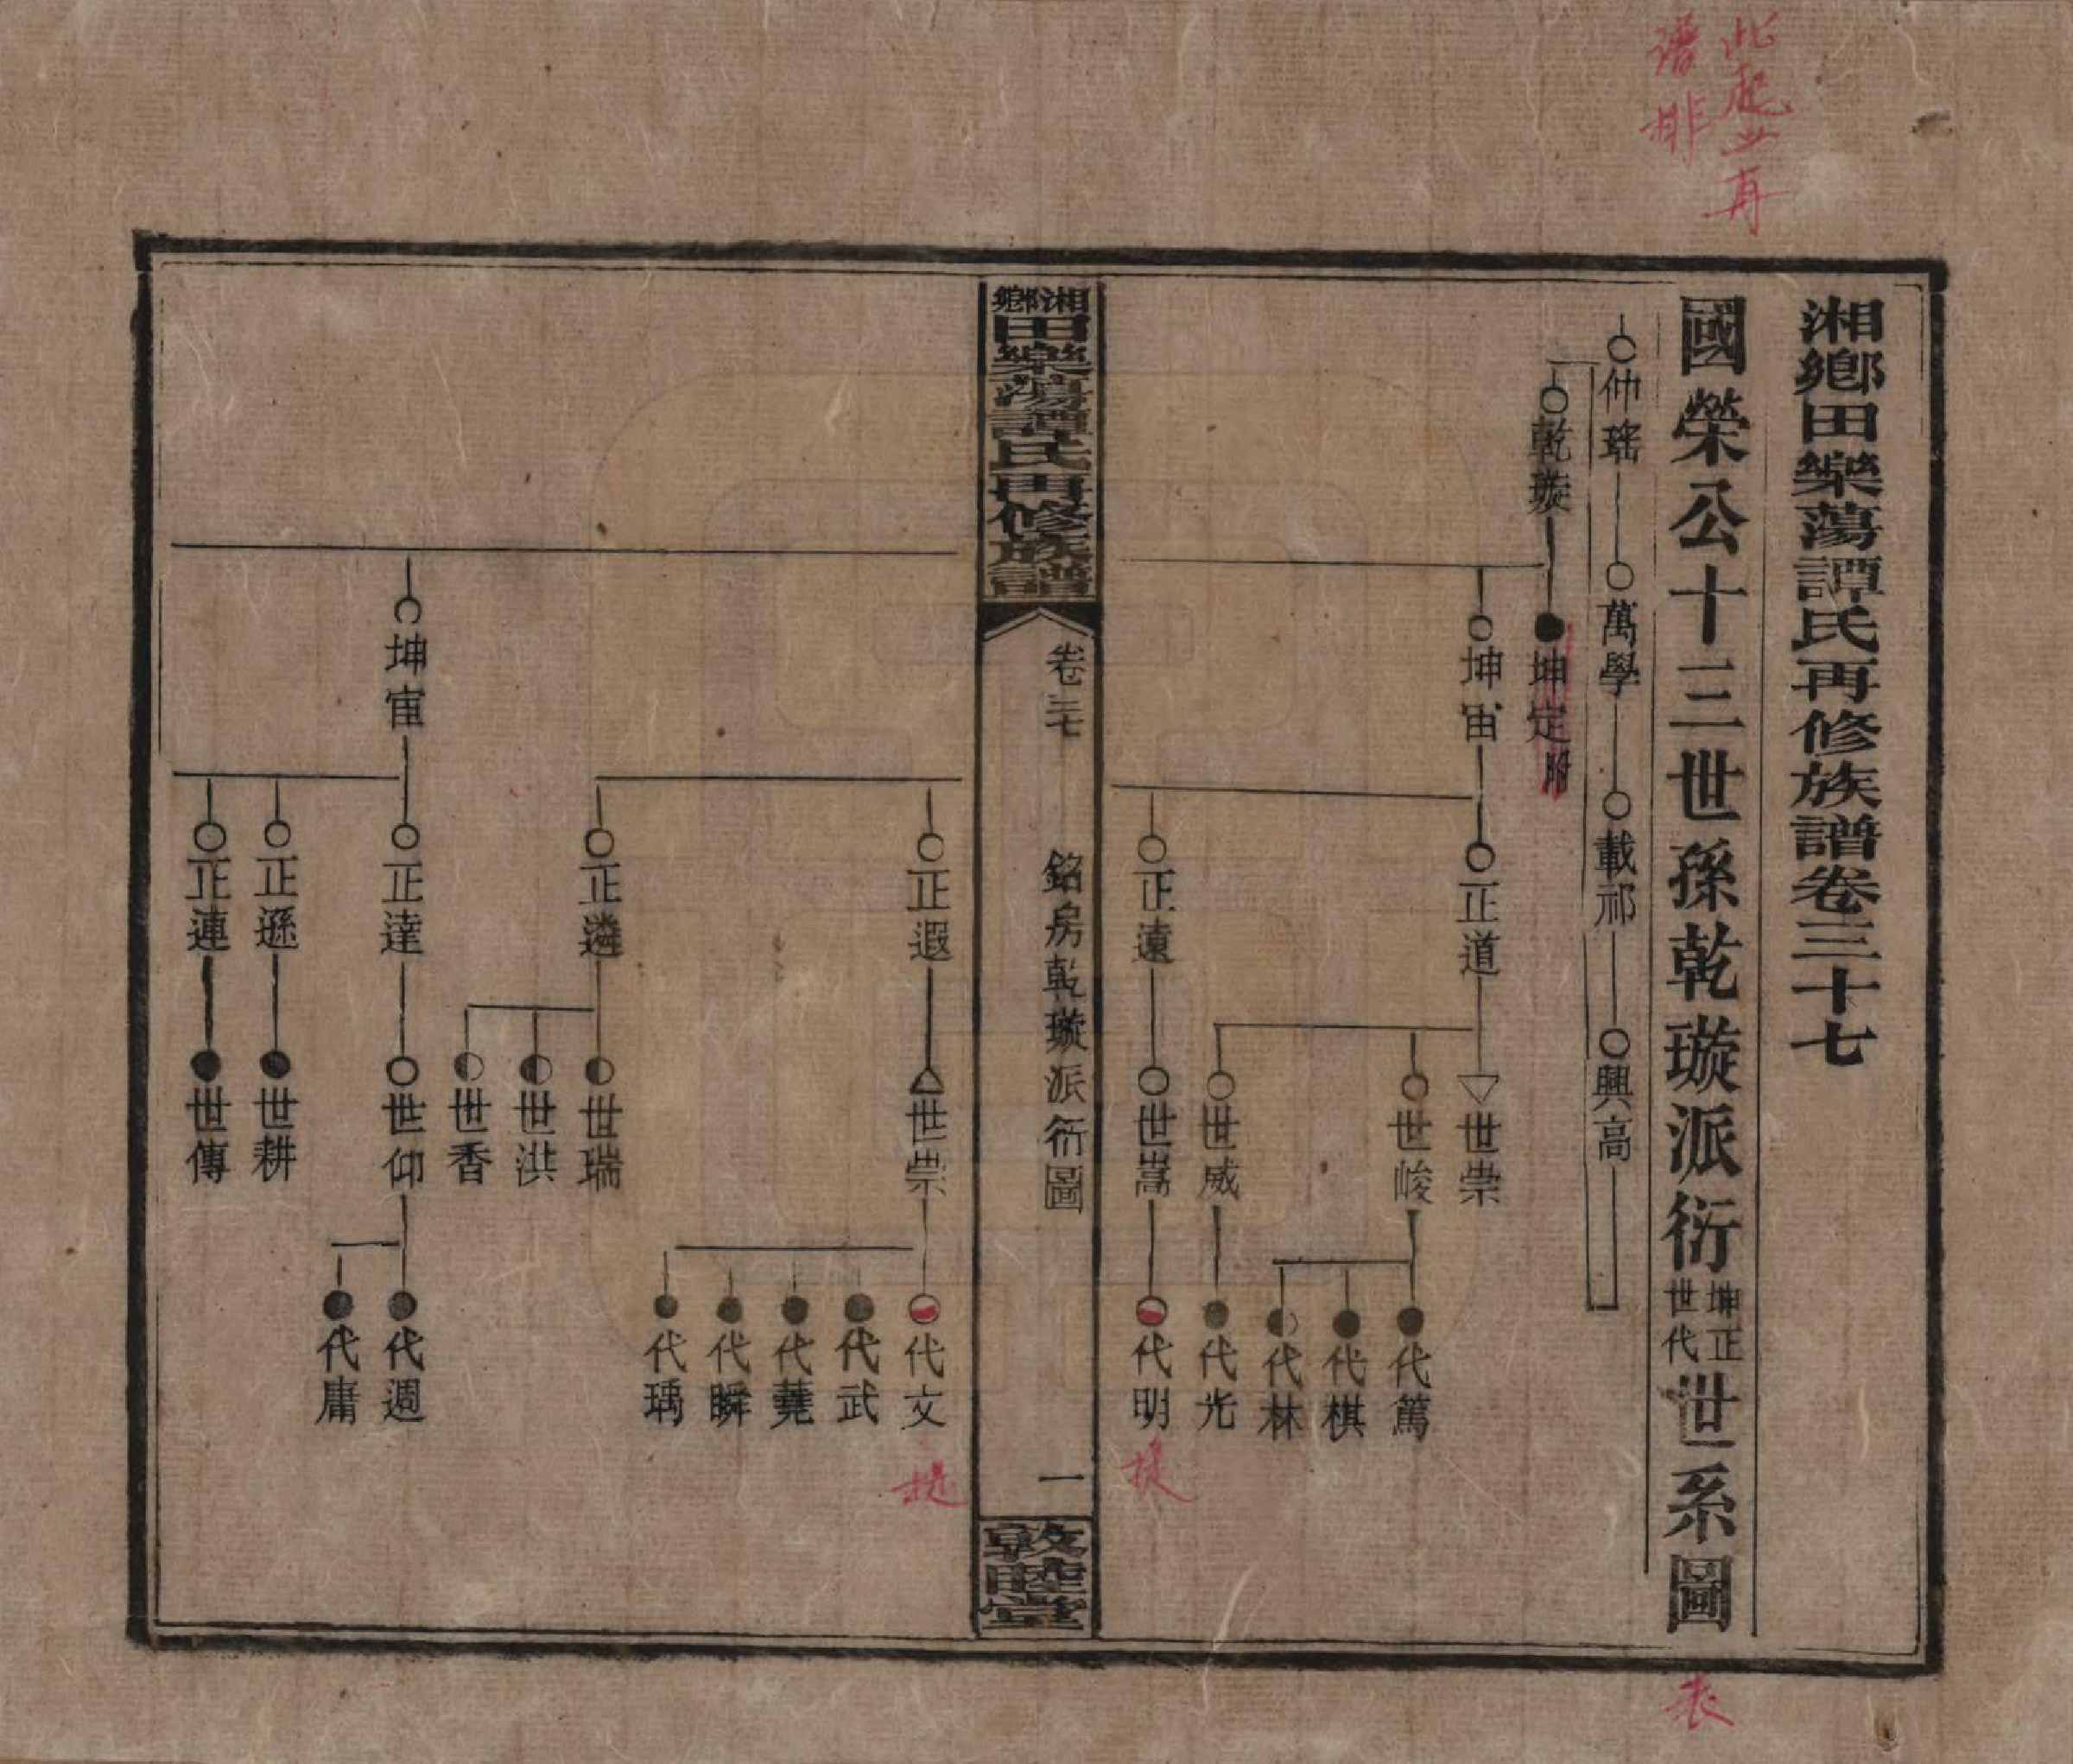 湘鄉田樂蕩譚氏再修族譜卷三十七
國榮公十三世孫乾璇派衍坤正世代世系圖
仲瑤 萬學 載祁 興高
乾璇
坤定 附
坤宙
正道
世崇
世峻
代篤
代棋
代林
世威
代光
正遠
世嵩
代明
湘鄉田樂蕩譚氏再修族譜
卷三七
銘房乾璇派衍圖
一
敦睦堂
正遐
世崇
代文
代武
代蕘
代瞬
代瑀
正遴
世瑞
世洪
世香
坤宙
正達
世仰
代週
代庸
正遜
世耕
正連
世傳
此起 再
譜排
提
提
表